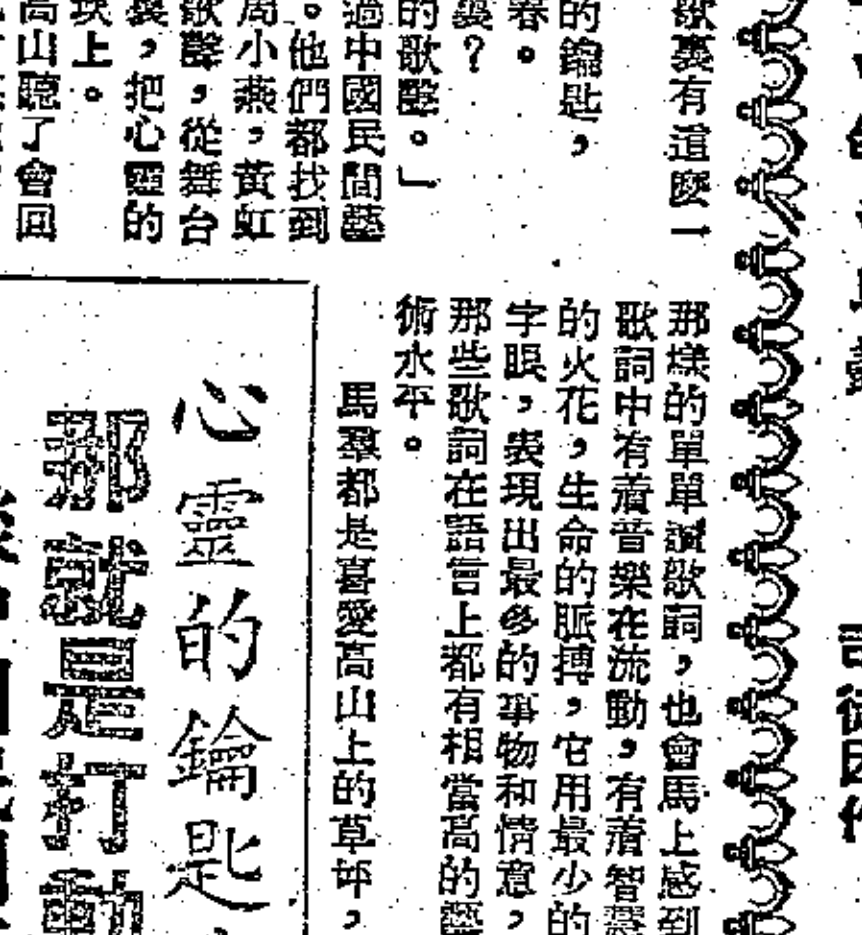 歌裏有這麼一
的鑰匙，
春。
裏？
的歌聲。」
過中國民間藝
。他們都找到
周小燕，黃虹
歌聲，從舞台
裏，把心靈的
块上。
高山聽了會回
那樣的單單讀歌詞，也會馬上感到
歌詞中有着音樂在流動，有着智慧
的火花，生命的脈搏，它用最少的
字眼，表現出最多的事物和情意，
那些歌詞在語言上都有相當高的藝
術水平。
馬羣都是喜愛高山上的草坪，
心靈的鑰匙
那就是打動